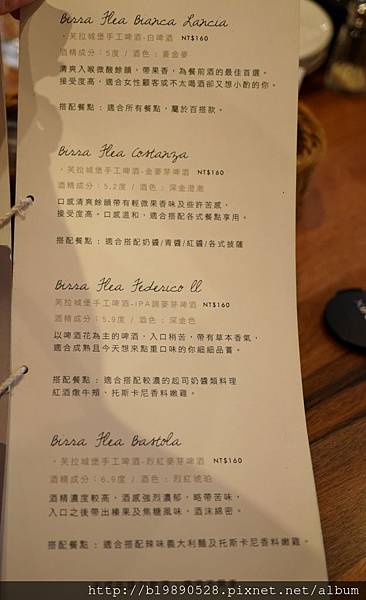 Birra Flea Bianca Lancia
·芙拉城堡手工啤酒-白啤酒 NT$160
酒精成分：5度 / 酒色：黃金麥
清爽入喉微酸餘韻，帶果香，為餐前酒的最佳首選。
接受度高，適合女性顧客或不太喝酒卻又想小酌的你。
搭配餐點：適合所有餐點，屬於百搭款。
Birra Flea Costanza
·芙拉城堡手工啤酒-金麥芽啤酒 NT$160
酒精成分：5.2度 / 酒色：深金澄澈
口感清爽餘韻帶有輕微果香味及些許苦感，
接受度高。口感溫和，適合搭配各式餐點享用。
搭配餐點：適合搭配奶醬/青醬/紅醬/各式披薩
Birra Flea Federico ll
芙拉城堡手工啤酒-IPA調麥芽啤酒 NT$160
酒精成分：5.9度 / 酒色：深金色
以啤酒花為主的啤酒，入口稍苦，帶有草本香氣，
適合成熟且今天想來點重口味的你細細品嘗。
搭配餐點：適合搭配較濃的起司奶醬類料理
紅酒燉牛頰、托斯卡尼香料嫩雞。
Birra Flea Bastola
·芙拉城堡手工啤酒-烈紅麥芽啤酒 NT$160
酒精成分：6.9度 / 酒色：烈紅琥珀
酒精濃度較高，酒感強烈濃郁，略帶苦味，
入口之後帶出榛果及焦糖風味，酒沫綿密。
搭配餐點：適合搭配辣味義大利麵及托斯卡尼香料嫩雞。
http://b19890528.pixnet.net/album